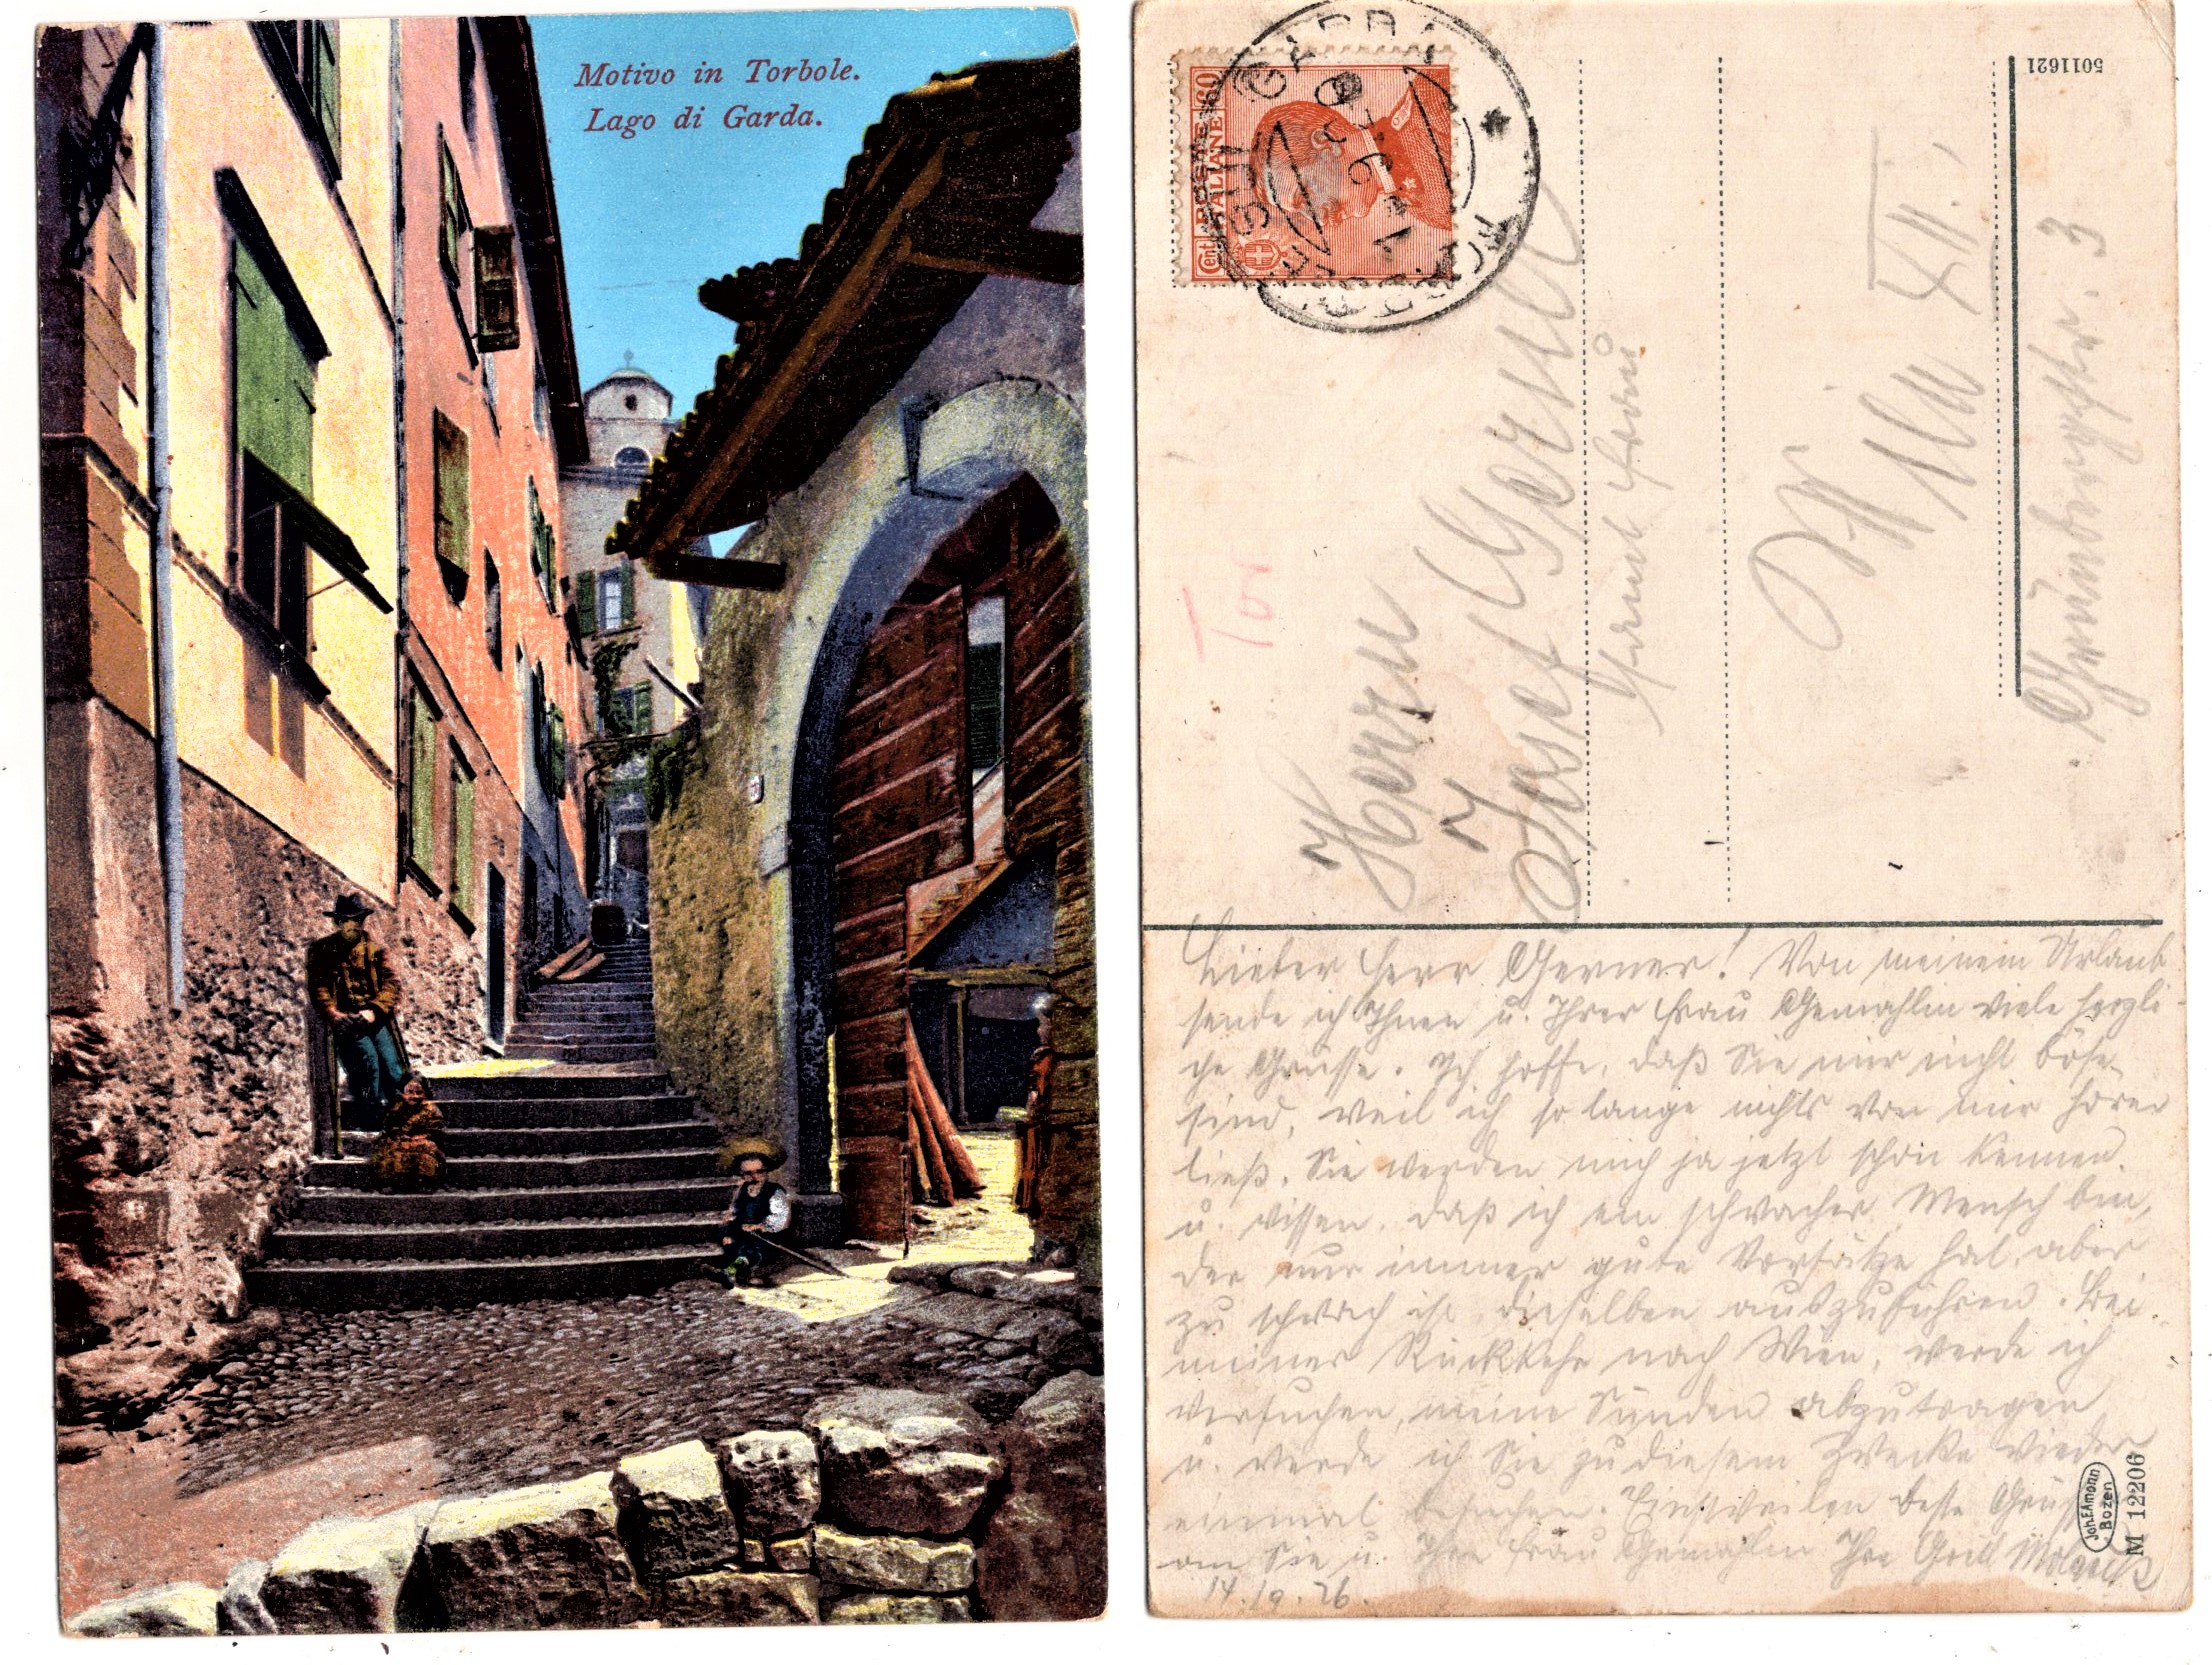 Motivo in Torbole.
Lago di Garda.
5011621
POSTE ITALIANE
Cent 60
GARDA
Herrn
Josef Gerner
samt Frau
Wien
XII.
Grünbergstr. 3
Lieber Herr Gerner! Von meinem Urlaub
sende ich Ihnen u. Ihrer Frau Gemahlin viele herzli
che Grüsse. Ich hoffe, daß Sie mir nicht böse
sind, weil ich so lange nichts von mir hören
ließ. Sie werden mich ja jetzt schon kennen
u. wissen, daß ich ein schwacher Mensch bin,
der nur immer gute Vorsätze hat, aber
zu schwach ist, dieselben auszuführen. Bei
meiner Rückkehr nach Wien, werde ich
versuchen, meine Sünden abzutragen
u. werde ich Sie zu diesem Zwecke wieder
einmal besuchen. Einstweilen beste Grüsse
an Sie u. Ihre Frau Gemahlin Ihre
14. 9. 26
Joh. F. Amonn
Bozen
M 12206